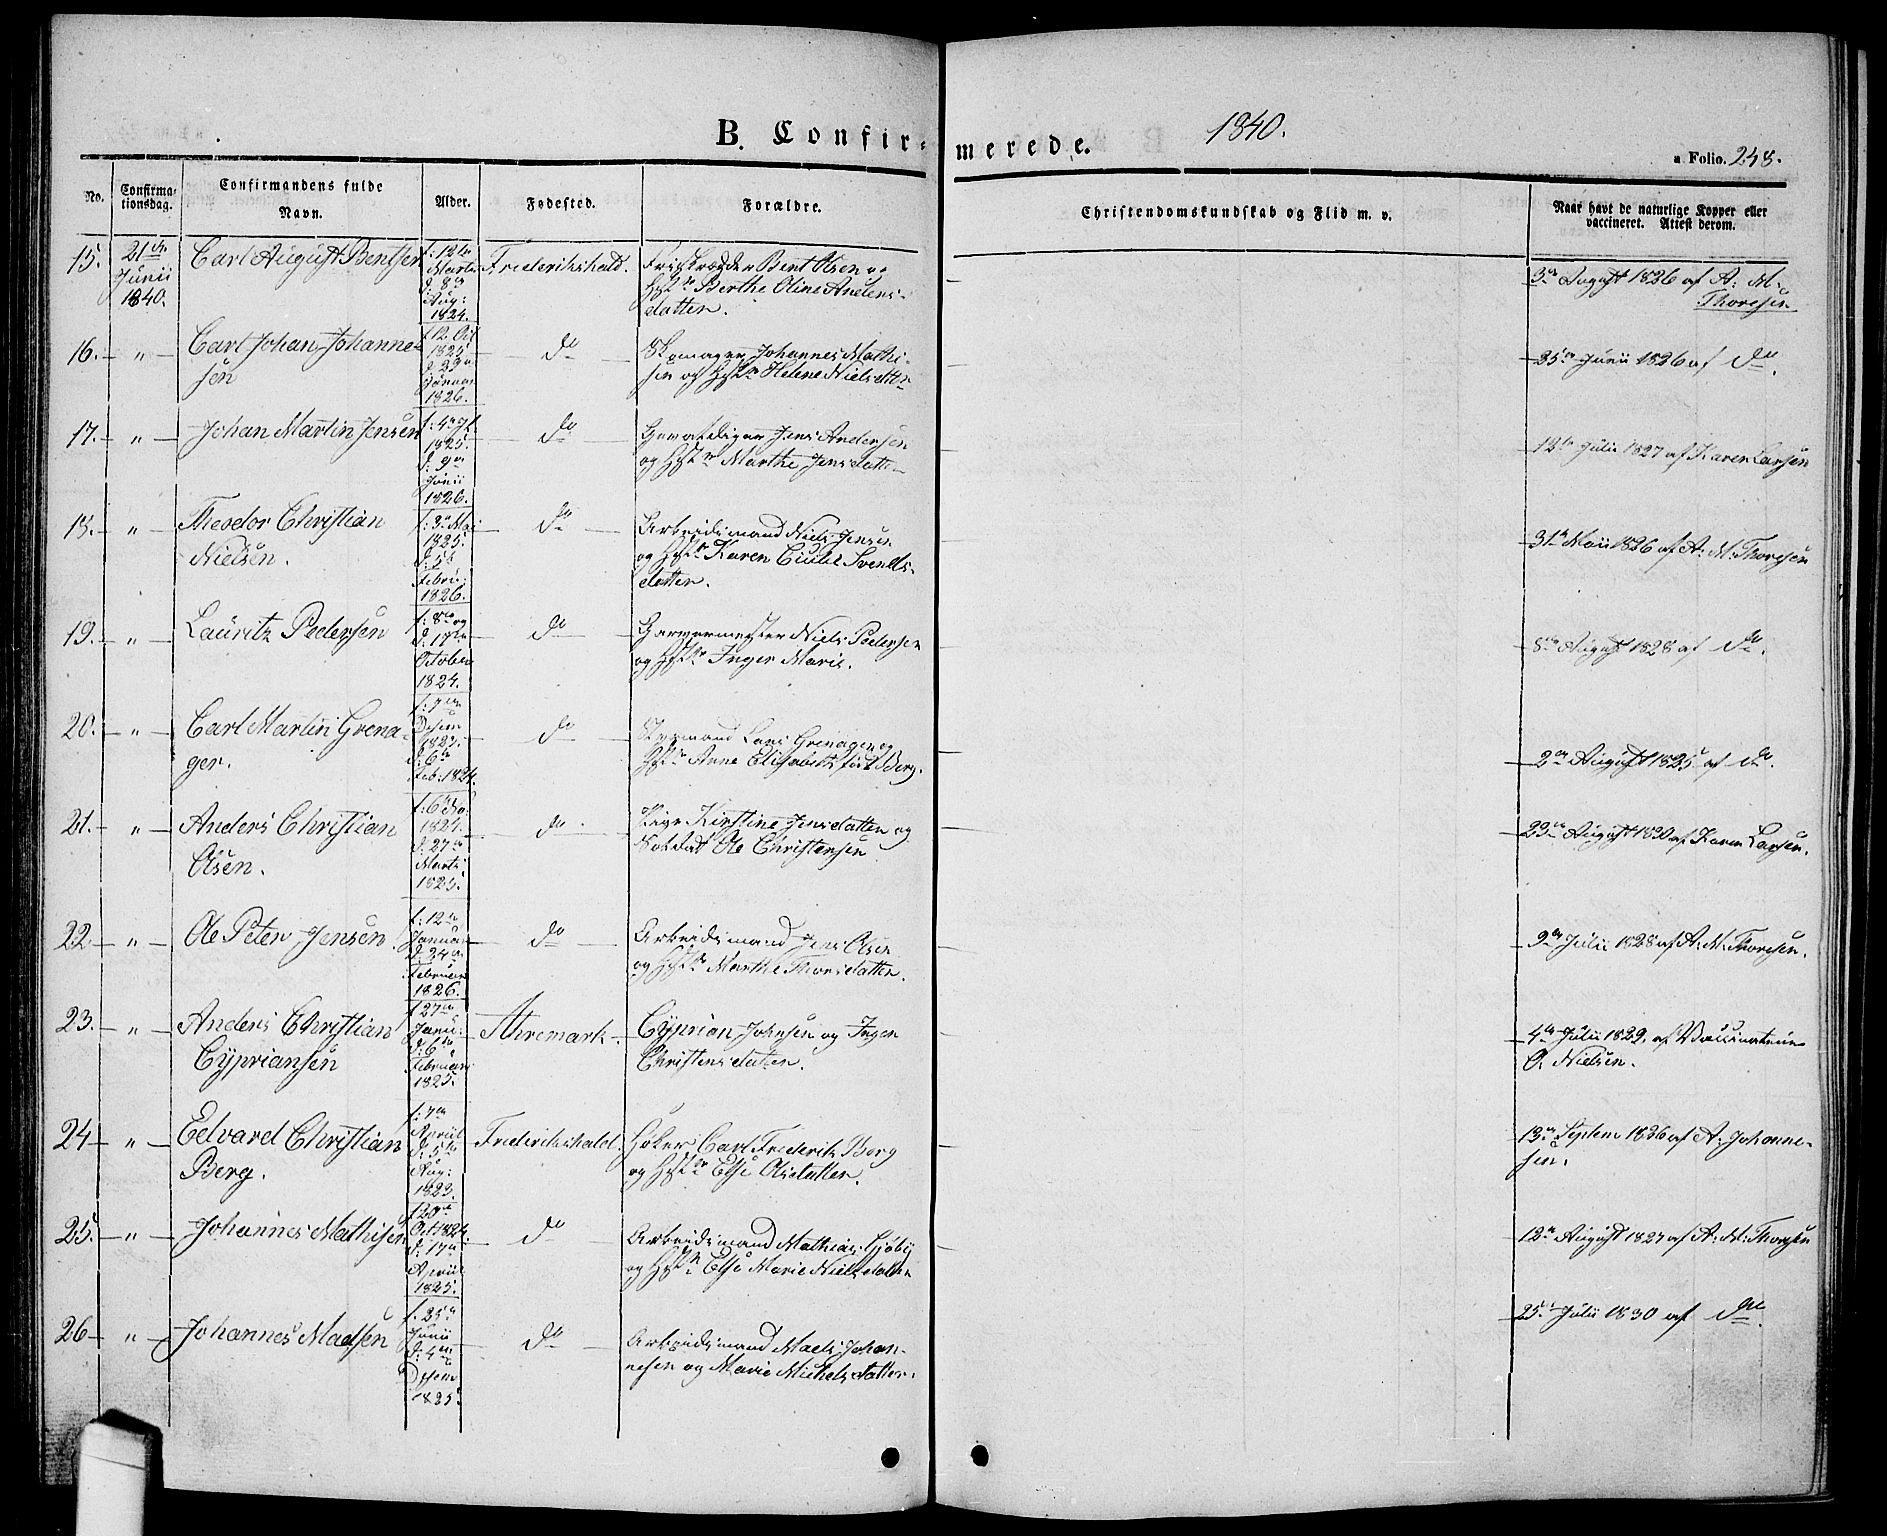 B. Confir-
merede.
1840.
a Folio. 248.
No.
Confirma-
tionsdag.
Confirmandens fulde
Navn.
Alder.
Fødested.
Forældre.
Christendomskundskab og Flid m. v.
Naar havt de naturlige Kopper eller
vaccineret. Attest derom.
15.
21de
Junii
1840.
Carl August Bentsen
f: 12te
Marts
d: 8de
Aug:
1824.
Frederikshald.
Bent Olsen og
Hst. Berthe Oline Anders-
datter.
3de August 1826 af A: M:
Thoresen
16. — " —
Carl Johan Johanne-
sen
f 12 Oct
1825
d 29de
Januar
1826.
do
Skomager Johannes Mathi-
sen og Hst. Helene Nielsdtter
25de Junii 1826 af do.
17. — " —
Johan Martin Jensen
1825.
d: 9de
Junii
1826.
do
Jens Andersen
og Hst. Marthe Jensdatter
12te Julii 1827 af Karen Larsen
18. — " —
Theodor Christian
Nielsen.
f: 3de Mai
1825.
Febru:
1826.
do
Arbeidsmand Niels Jensen
og Hst. Karen Svends-
datter.
31te Maii 1826 af A: M: Thoresen
19. — " —
Lauritz Pedersen
f: 8de og
d: 17de
October
1824.
do
Garvermester Niels Pedersen
og Hst. Inger Marie.
8de August 1828 af do.
20. — " —
Carl Martin Grena-
ger.
f: 7de
Decem
1823.
d: 6te
Feb: 1824.
do
Styrmand Lars Grenager og
Hst. Anne Elisabeth født Berg.
2den August 1825 af do.
21. — " —
Anders Christian
Olsen.
1824.
d: 27de
Marts
1825.
do
Pige Kirstine Jensdatter og
Soldat Ole Christensen
23de August 1830 af Karen Larsen.
22. — " —
Ole Peter Jensen
f: 12te
Januar
d: 24de
Februar
1826.
do
Arbeidsmand Jens Olsen
og Hst. Marthe Thorsdatter.
9de Julii 1828 af A: M: Thoresen.
23. — " —
Anders Christian
Cypriansen
f 27de
Janu:
d: 6te
Februar
1825.
Ahremark.
Cyprian Johnsen og Inger
Christensdatter.
4de Julii 1829. af Vaccinateur
O. Nielsen.
24 — " —
Edvard Christian
Berg.
f: 7de
April
d: 5te
Aug:
1823.
Frederikshald.
Høker Carl Frederik Berg
og Hst. Else Olsdatter.
13de Septem 1836 af A: Johanne-
sen.
25. — " —
Johannes Mathisen
f 20de
Oct 1824.
d: 17de
April
1825.
do
Arbeidsmand Mathias Gjøby
og Hst. Else Marie Nielsdatter
12te August 1827 af A: M: Thoresen
26 — " —
Johannes Madsen
f. 25de
Junii
d: 4de
Decem
1825.
do
Arbeidsmand Mads Johan-
nesen og Marie Michelsdatter.
25de Julii 1830 af do.